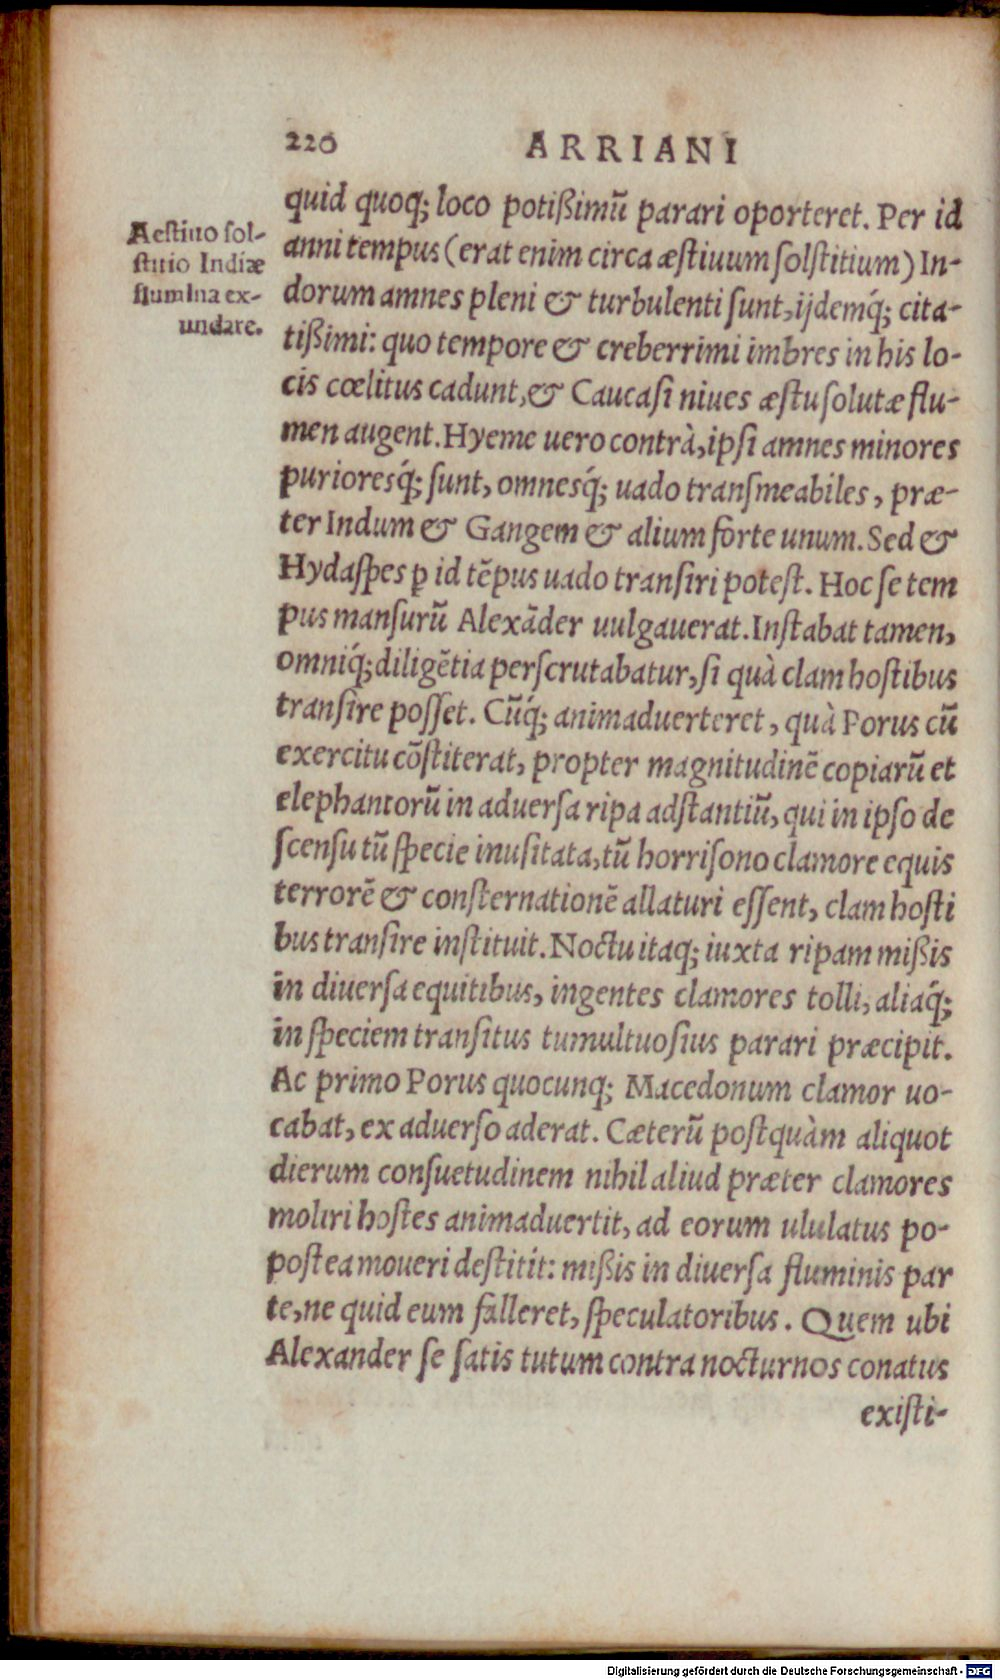 220 ARRIANI
Aestiuo sol-
stitio Indiæ
flumina ex-
undare.
quid quoq; loco potißimũ parari oporteret. Per id
anni tempus (erat enim circa æstiuum solstitium) In-
dorum amnes pleni & turbulenti sunt, ijdemq́; cita-
tißimi: quo tempore & creberrimi imbres in his lo-
cis cœlitus cadunt, & Caucasi niues æstu solutæ flu-
men augent. Hyeme uero contrà, ipsi amnes minores
purioresq́; sunt, omnesq́; uado transmeabiles, præ-
ter Indum & Gangem & alium forte unum. Sed &
Hydaspes ꝑ id tẽpus uado transiri potest. Hoc se tem
pus mansurũ Alexãder uulgauerat. Instabat tamen,
omniq́; diligẽtia perscrutabatur, si quà clam hostibus
transire posset. Cũq́; animaduerteret, quà Porus cũ
exercitu cõstiterat, propter magnitudinẽ copiarũ et
elephantorũ in aduersa ripa adstantiũ, qui in ipso de
scensu tũ specie inusitata, tũ horrisono clamore equis
terrorẽ & consternationẽ allaturi essent, clam hosti
bus transire instituit. Noctu itaq; iuxta ripam mißis
in diuersa equitibus, ingentes clamores tolli, aliaq́;
in speciem transitus tumultuosius parari præcipit.
Ac primo Porus quocunq; Macedonum clamor uo-
cabat, ex aduerso aderat. Cæterũ postquàm aliquot
dierum consuetudinem nihil aliud præter clamores
moliri hostes animaduertit, ad eorum ululatus po-
postea moueri destitit: mißis in diuersa fluminis par
te, ne quid eum falleret, speculatoribus. Quem ubi
Alexander se satis tutum contra nocturnos conatus
existi-
Digitalisierung gefördert durch die Deutsche Forschungsgemeinschaft - DFG